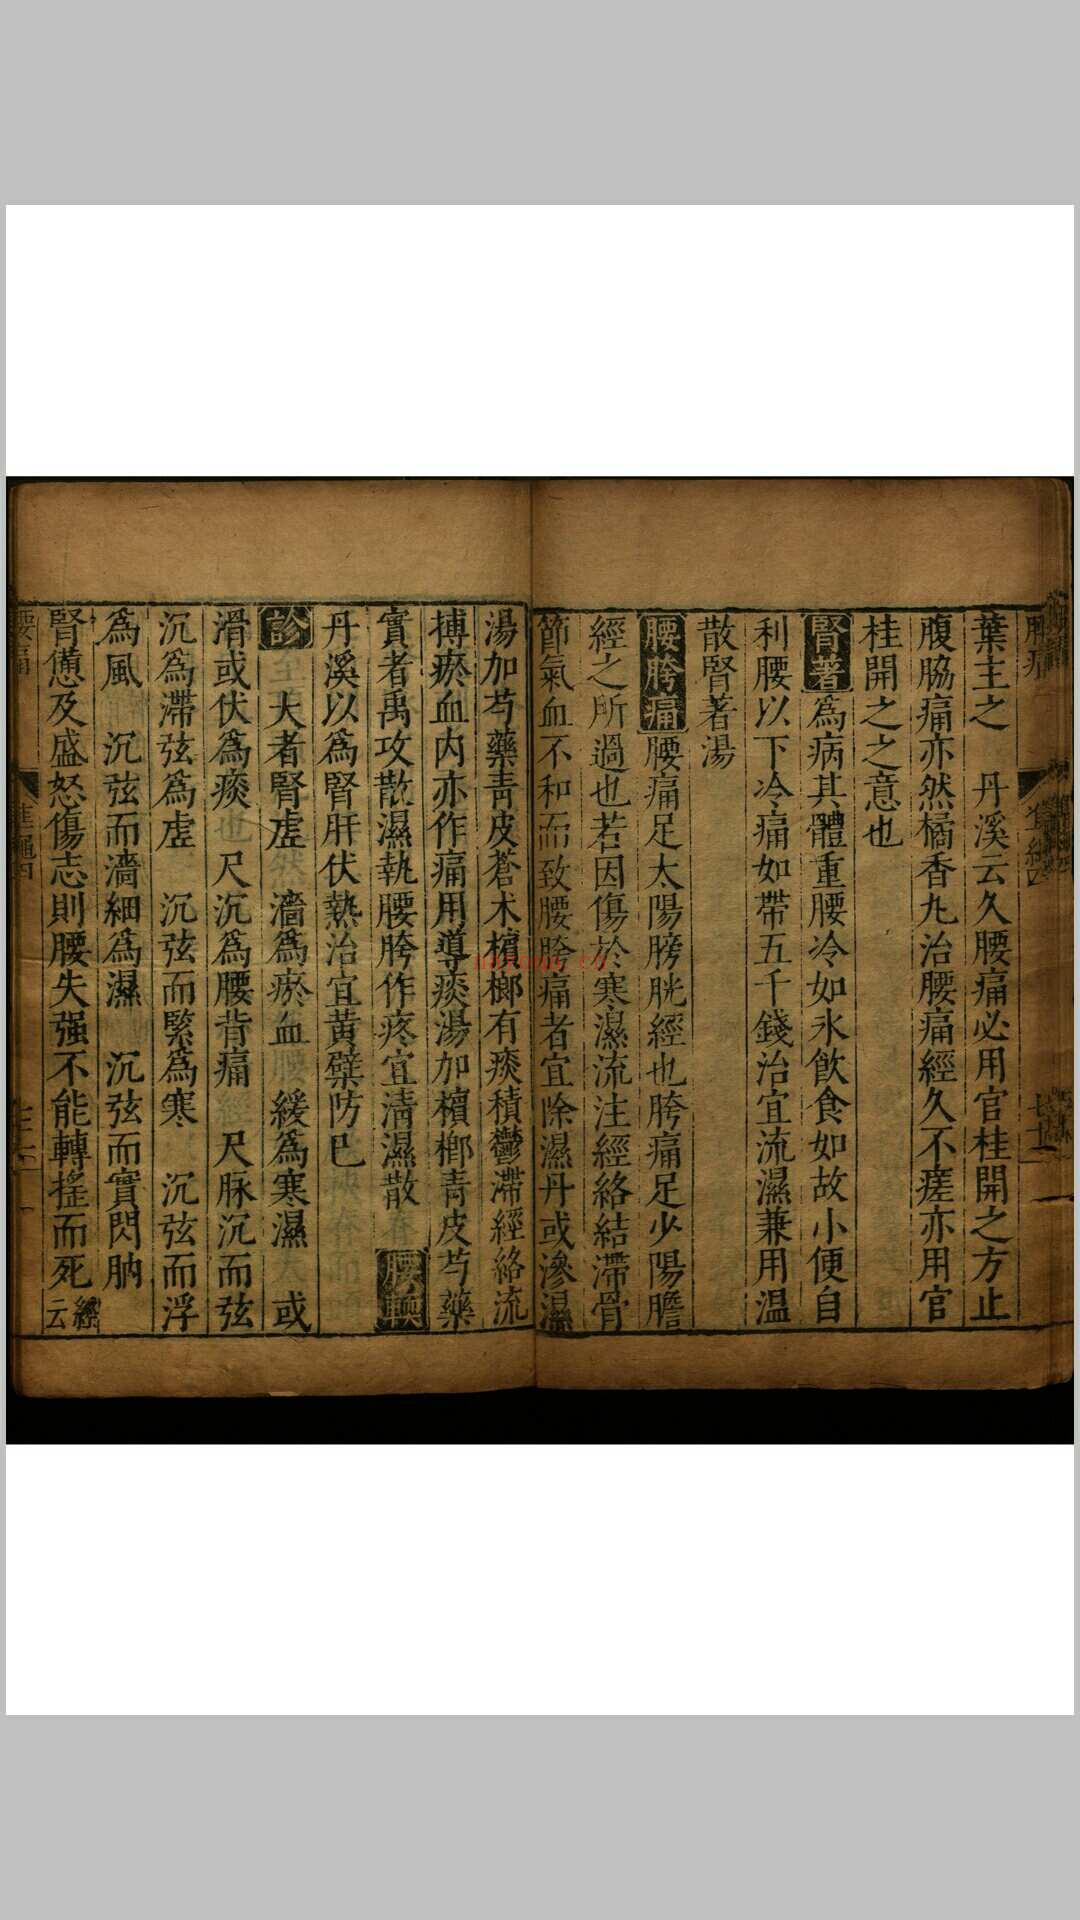 葉主之　丹溪云久腰痛必用官桂開之方止
腹脇痛亦然橘香丸治腰痛經久不瘥亦用官
桂開之之意也
腎著為病其體重腰冷如氷飲食如故小便自
利腰以下冷痛如帶五千錢治宜流濕兼用温
散腎著湯
腰胯痛腰痛足太陽膀胱經也胯痛足少陽膽
經之所過也若因傷於寒濕流注經絡結滯骨
節氣血不和而致腰胯痛者宜除濕丹或滲濕
湯加芍藥青皮蒼术檳榔有痰積鬱滯經絡流
搏瘀血内亦作痛用導痰湯加檳榔青皮芍藥
實者禹攻散濕執腰胯作疼宜清濕散　腰軟
丹溪以為腎肝伏熱治宜黄蘗防已
診　大者腎虛　濇為瘀血　緩為寒濕　或
滑或伏為痰　尺沉為腰背痛　尺脉沉而弦
沉為滯弦為虛　沉弦而緊為寒　沉弦而浮
為風　沉弦而濇細為濕　沉弦而實閃肭
腎憊及盛怒傷志則腰失强不能轉搖而死經云
腰痛